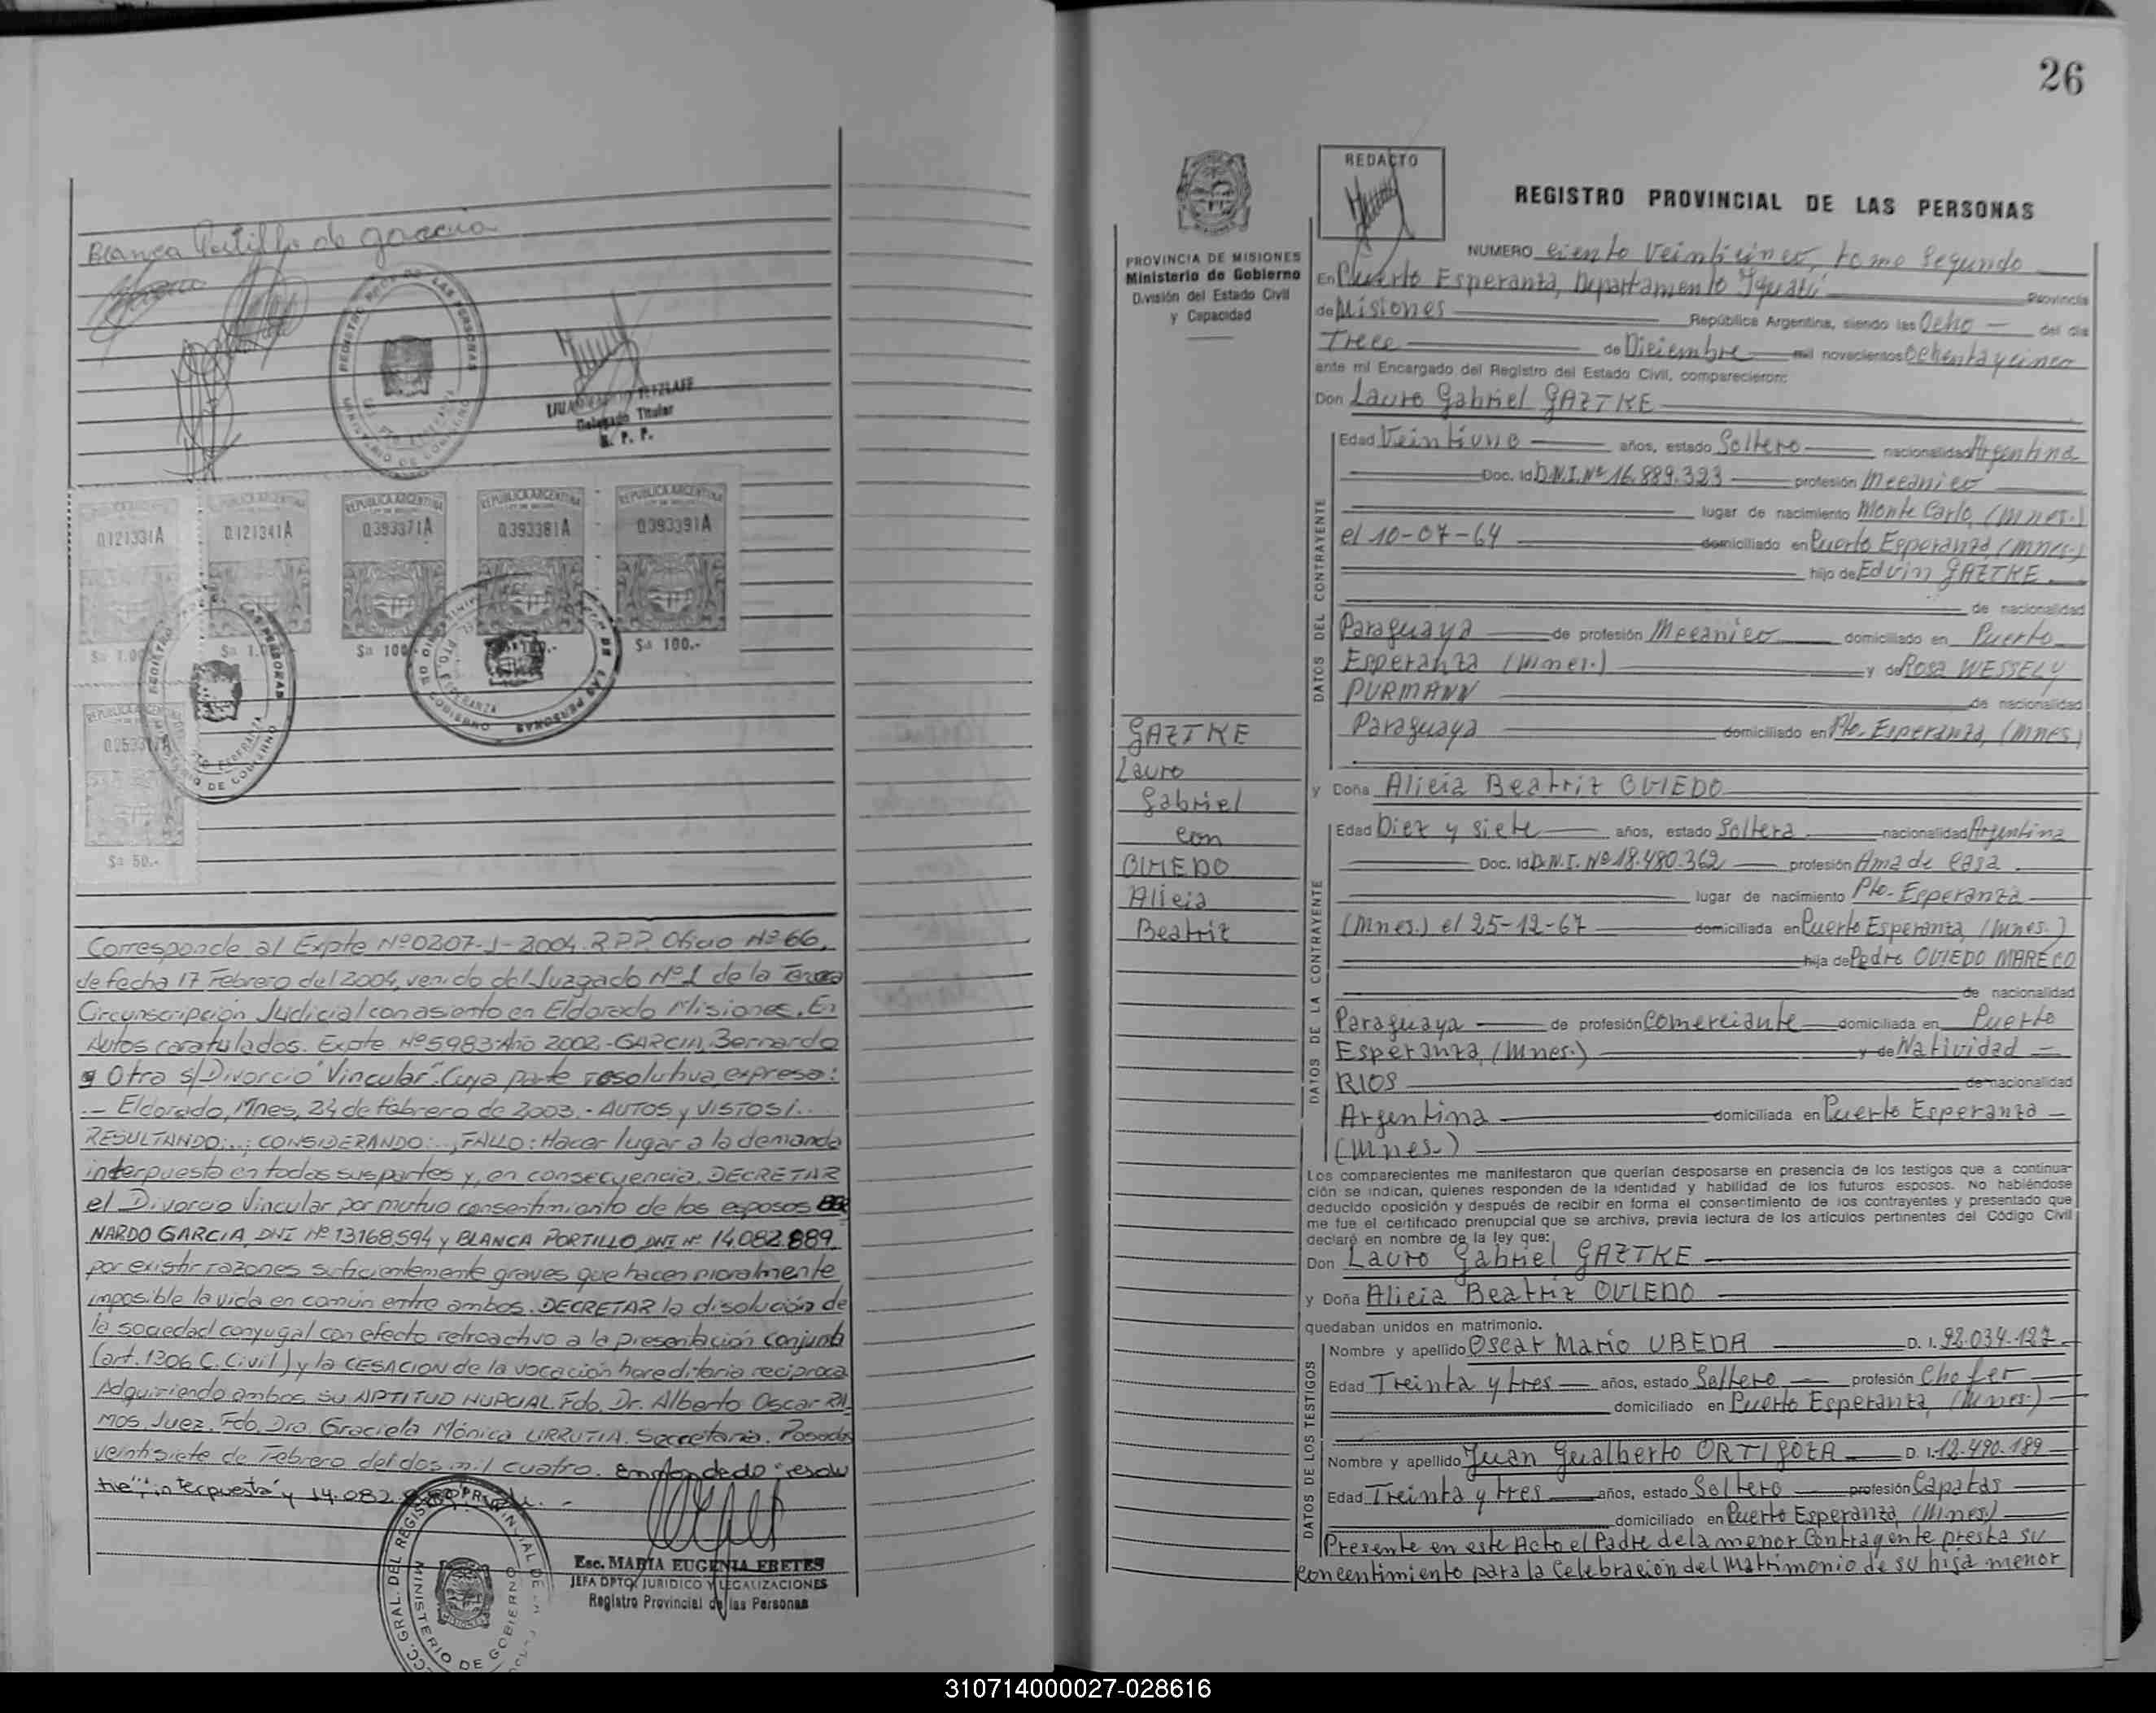 Blanca Portillo de Garcia
REGISTRO PROV. DE LAS PERSONAS
MINISTERIO DE GOBIERNO
Delegado Titular
R. P. P.
REPUBLICA ARGENTINA
0.121331A
0.121341A
0.393371A
0.393381A
0.393391A
$a 1.00
$a 100.-
$a 100.-
$a 50.-
Corresponde al Expte Nº0207-J-2004. R.P.P. Oficio Nº 66,
de fecha 17 Febrero del 2004, venido del Juzgado Nº1 de la Tercera
Circunscripción Judicial con asiento en Eldorado Misiones. En
Autos caratulados. Expte Nº5983 Año 2002.-GARCIA, Bernardo
y Otra s/Divorcio Vincular". Cuya parte resolutiva expresa:
.- Eldorado, Mnes, 24 de febrero de 2003.- AUTOS y VISTOS:..
RESULTANDO:..; CONSIDERANDO:..., FALLO: Hacer lugar a la demanda
interpuesta en todas sus partes y, en consecuencia, DECRETAR
el Divorcio Vincular por mutuo consentimiento de los esposos BER
NARDO GARCIA, DNI Nº 13168.594 y BLANCA PORTILLO, DNI Nº 14.082.889,
por existir razones suficientemente graves que hacen moralmente
imposible la vida en común entre ambos. DECRETAR la disolución de
la sociedad conyugal con efecto retroactivo a la presentación conjunta
(art. 1306 C. Civil) y la CESACION de la vocación hereditaria recíproca
Adquiriendo ambos su APTITUD NUPCIAL. Fdo. Dr. Alberto Oscar RA
MOS, Juez. Fdo. Dra. Graciela Mónica URRUTIA. Secretaria. Posadas
veintisiete de Febrero del dos mil cuatro. Enmendado: "resolu
tiva"; "interpuesta" y 14.082.
Esc. MARIA EUGENIA ERETES
JEFA DPTO. JURIDICO Y LEGALIZACIONES
Registro Provincial de las Personas
26
PROVINCIA DE MISIONES
Ministerio de Gobierno
División del Estado Civil
y Capacidad
REDACTO
REGISTRO PROVINCIAL DE LAS PERSONAS
NUMERO ciento Veinticinco, tomo Segundo
En Puerto Esperanza, Departamento Iguazú Provincia
de Misiones República Argentina, siendo las Ocho del día
Trece de Diciembre mil novecientos Ochenta y cinco
ante mí Encargado del Registro del Estado Civil, comparecieron:
Don Lauro Gabriel GAZTKE
DATOS DEL CONTRAYENTE
Edad Veintiuno años, estado Soltero nacionalidad Argentina
Doc. Id D.N.I. Nº 16.889.323 profesión Mecánico
lugar de nacimiento Monte Carlo, (Mnes.)
el 10-07-64 domiciliado en Puerto Esperanza, (Mnes.)
hijo de Edvin GAZTKE
de nacionalidad
Paraguaya de profesión Mecánico domiciliado en Puerto
Esperanza (Mnes.) y de Rosa WESSELY
PURMANN de nacionalidad
Paraguaya domiciliado en Pto. Esperanza, (Mnes)
y Doña Alicia Beatriz OVIEDO
DATOS DE LA CONTRAYENTE
Edad Diez y siete años, estado Soltera nacionalidad Argentina
Doc. Id D.N.I. Nº 18.480.362 profesión Ama de Casa
lugar de nacimiento Pto. Esperanza
(Mnes.) el 25-12-67 domiciliada en Puerto Esperanza, (Mnes.)
hija de Pedro OVIEDO MARECO
de nacionalidad
Paraguaya de profesión Comerciante domiciliada en Puerto
Esperanza, (Mnes.) y de Natividad
RIOS de nacionalidad
Argentina domiciliada en Puerto Esperanza
(Mnes.)
GAZTKE
Lauro
Gabriel
con
OVIEDO
Alicia
Beatriz
Los comparecientes me manifestaron que querían desposarse en presencia de los testigos que a continua-
ción se indican, quienes responden de la identidad y habilidad de los futuros esposos. No habiéndose
deducido oposición y después de recibir en forma el consentimiento de los contrayentes y presentado que
me fue el certificado prenupcial que se archiva, previa lectura de los artículos pertinentes del Código Civil
declaré en nombre de la ley que:
Don Lauro Gabriel GAZTKE
y Doña Alicia Beatriz OVIEDO
quedaban unidos en matrimonio.
DATOS DE LOS TESTIGOS
Nombre y apellido Oscar Mario UBEDA D. I. 92.034.127
Edad Treinta y tres años, estado Soltero profesión Chofer
domiciliado en Puerto Esperanza, (Mnes.)
Nombre y apellido Juan Gualberto ORTIGOZA D. I. 12.490.189
Edad Treinta y tres años, estado Soltero profesión Capataz
domiciliado en Puerto Esperanza, (Mnes)
Presente en este Acto el Padre de la menor Contrayente presta su
concentimiento para la Celebración del Matrimonio de su hija menor
310714000027-028616